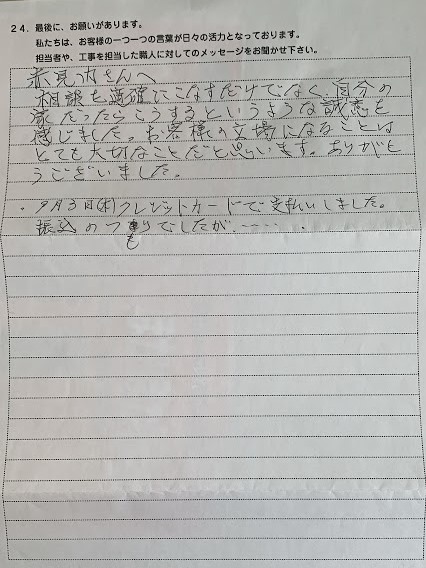 24. 最後に、お願いがあります。
私たちは、お客様の一つ一つの言葉が日々の活力となっております。
担当者や、工事を担当した職人に対してのメッセージをお聞かせ下さい。
さんへ
相談を適確にこなすだけでなく、自分の
家だったらこうするというような誠意を
感じました。お客様の立場になることは
とても大切なことだと思います。ありがと
うございました。
・9月3日(木)クレジットカードで支払いしました。
振込のつもりでしたが、……．